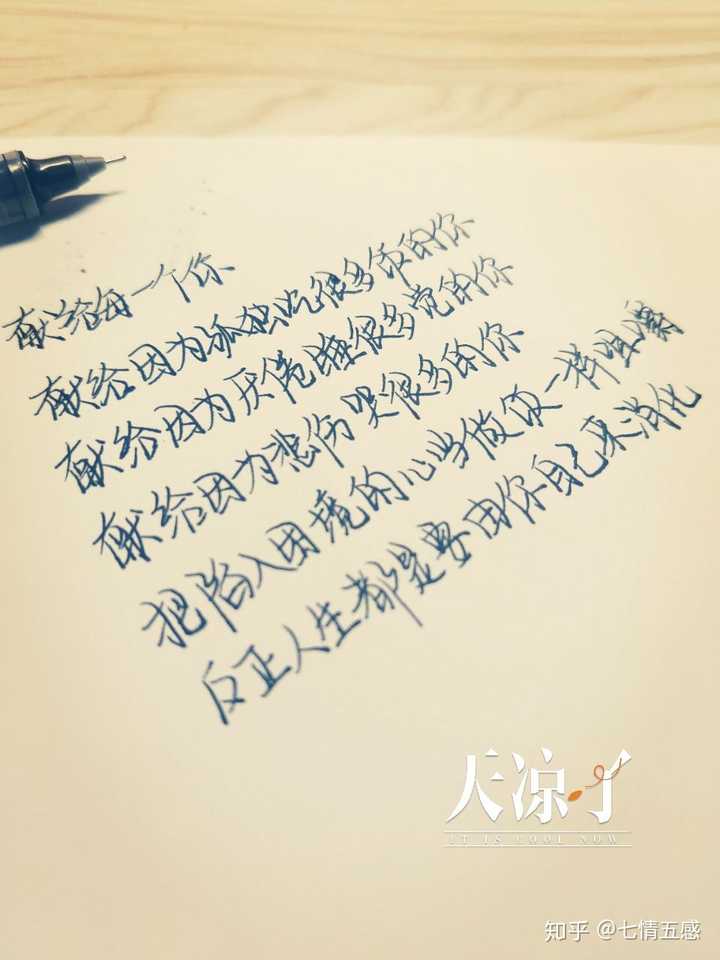 献给每一个你
献给因为孤独吃很多饭的你
献给因为厌倦睡很多觉的你
献给因为悲伤哭很多的你
把陷入困境的心当做饭一样咀嚼
反正人生都是要由你自己来消化
天凉了
IT IS COOL NOW
知乎 @七情五感